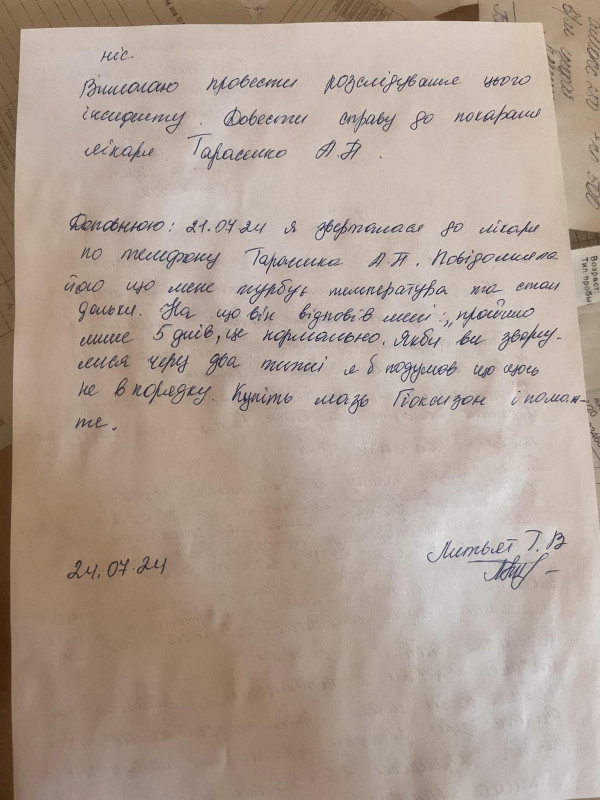 ніс.
Вимагаю провести розслідування цього
інциденту. Довести справу до покарання
лікаря Тарасенко А.П.
Доповнюю: 21.07.24 я зверталася до лікаря
по телефону Тарасенка А.П. Повідомила
його що мене турбує температура та стан
дальки. На що він відповів мені: „пройшло
лише 5 днів, це нормально. Якби ви зверну-
лися через два тижні я б подумов що щось
не в порядку. Купіть мазь Гіоксизон і помаж-
те.
24.07.24
Литвят Т.В